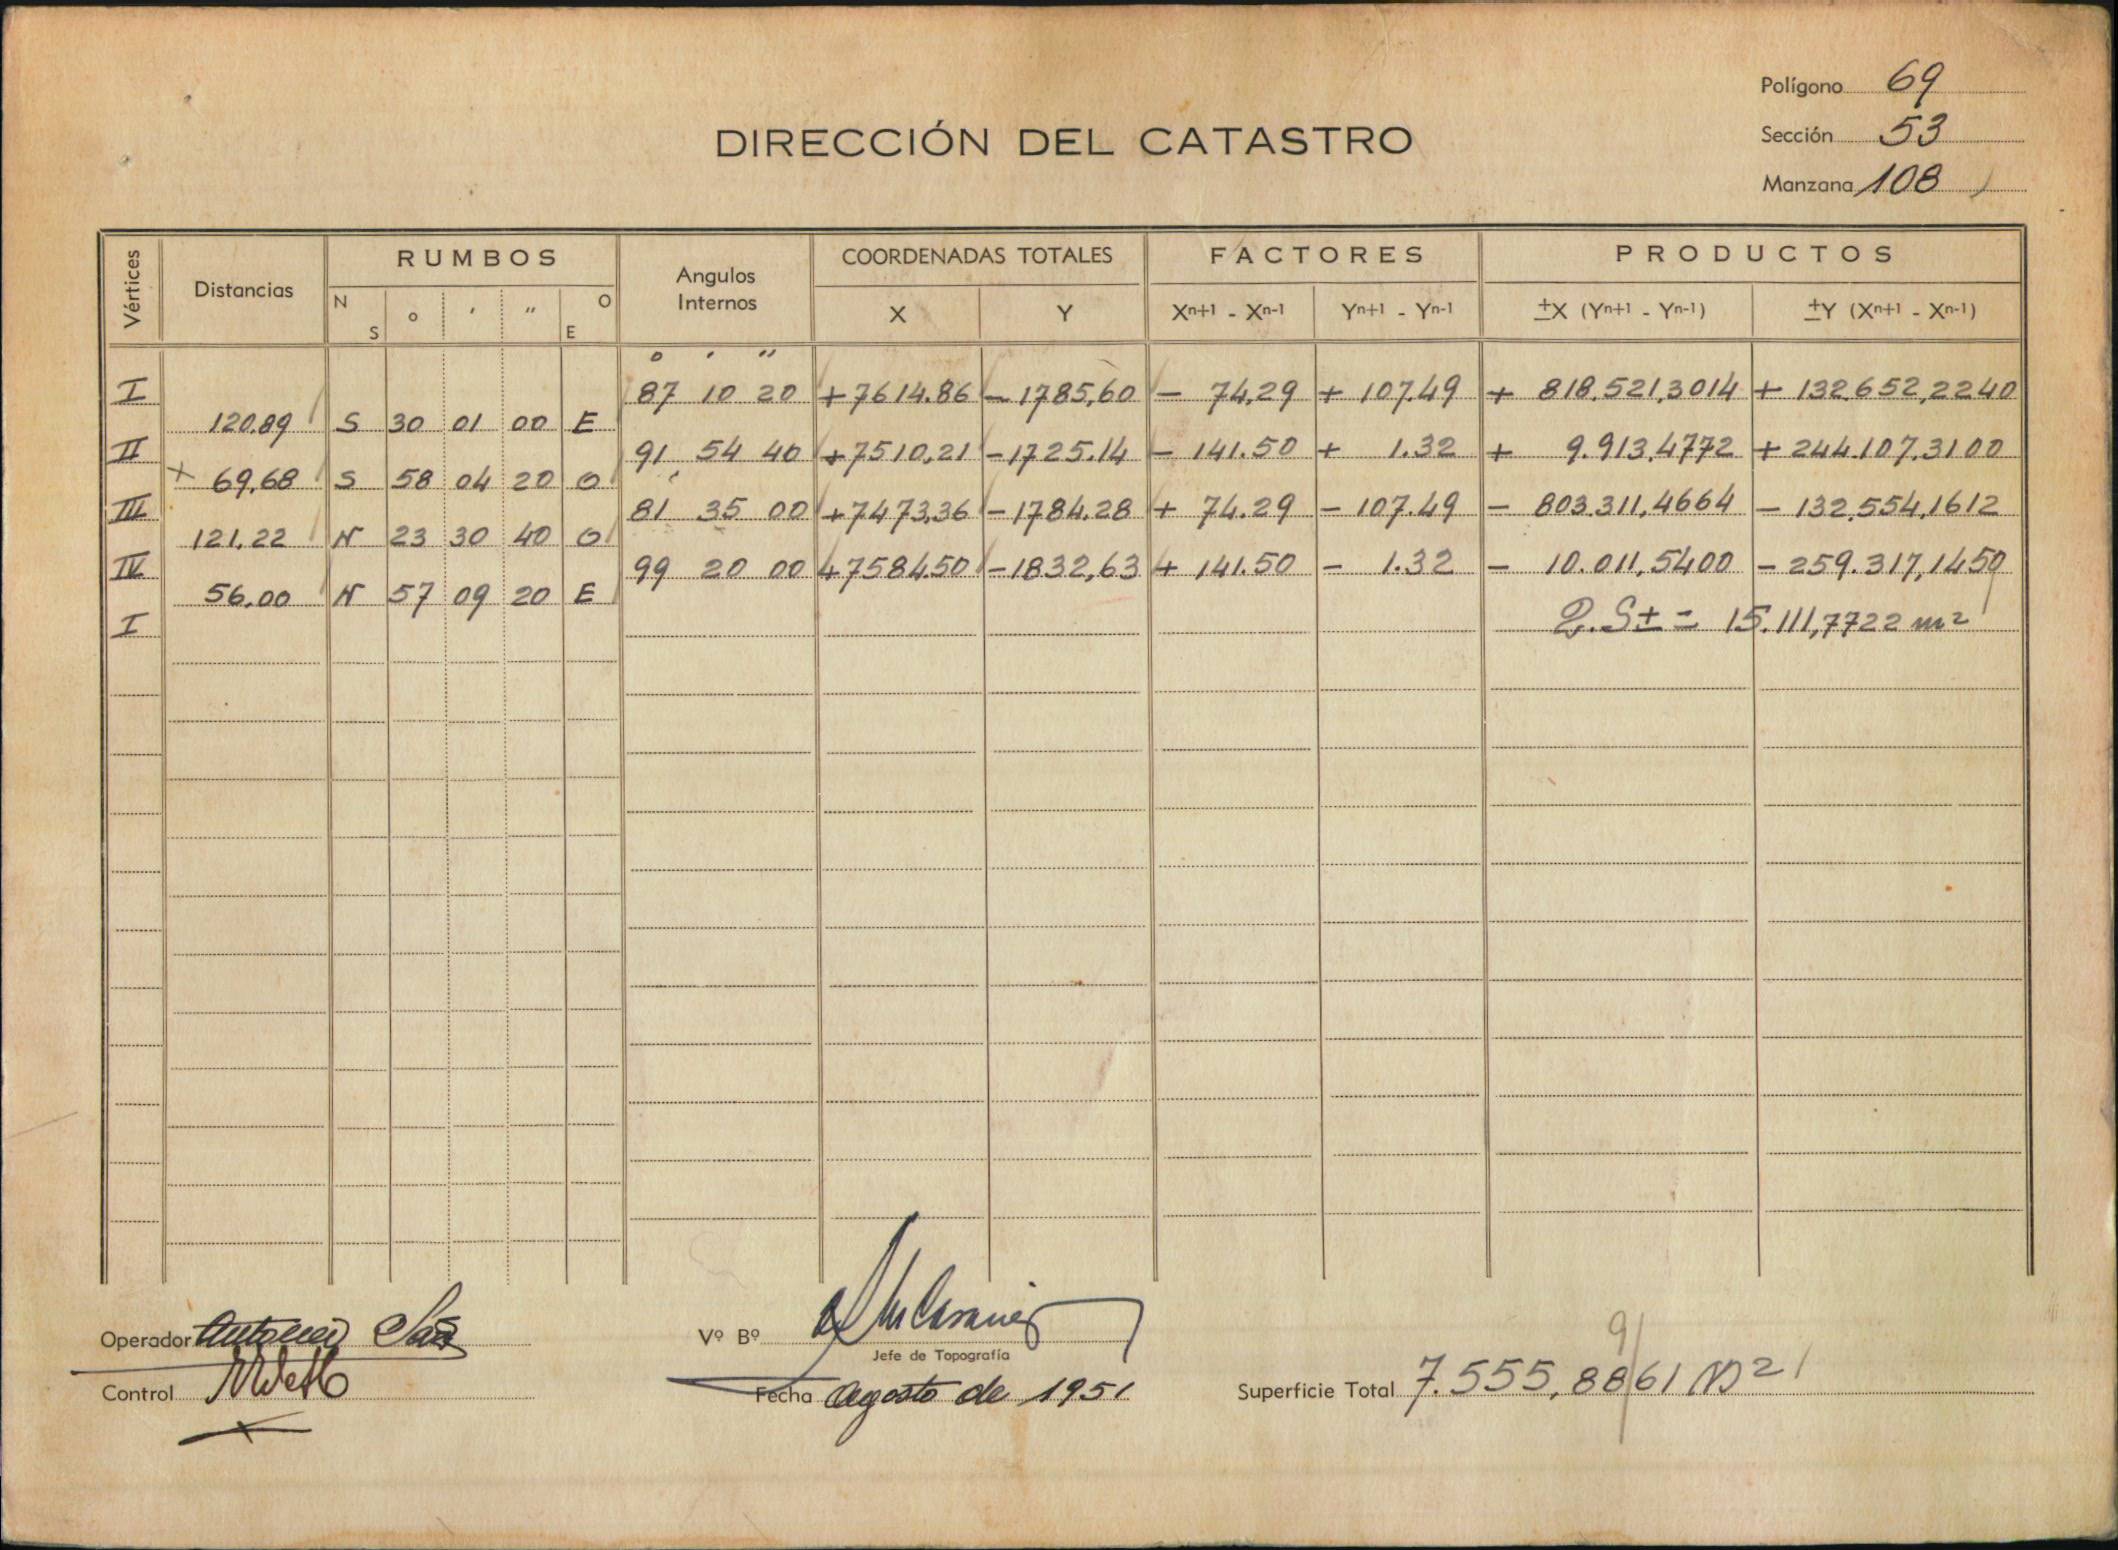 Polígono 69
DIRECCIÓN DEL CATASTRO
Sección 53
Manzana 108
Vértices Distancias RUMBOS Angulos Internos COORDENADAS TOTALES FACTORES PRODUCTOS
N S ° ' " O E X Y Xⁿ⁺¹ - Xⁿ⁻¹ Yⁿ⁺¹ - Yⁿ⁻¹ ±X (Yⁿ⁺¹ - Yⁿ⁻¹) ±Y (Xⁿ⁺¹ - Xⁿ⁻¹)
° ' "
I 87 10 20 +7614.86 -1785,60 - 74,29 + 107.49 + 818.521,3014 + 132.652,2240
120.89 S 30 01 00 E
II 91 54 40 +7510,21 -1725.14 - 141.50 + 1.32 + 9.913,4772 + 244.107,3100
69,68 S 58 04 20 O
III 81 35 00 +7473,36 -1784.28 + 74.29 - 107.49 - 803.311,4664 - 132.554,1612
121,22 N 23 30 40 O
IV 99 20 00 +7584.50 -1832,63 + 141.50 - 1.32 - 10.011,5400 - 259.317,1450
56.00 N 57 09 20 E
I 2.S± = 15.111,7722 m²
Operador Antonio
Vº Bº
Jefe de Topografía
9
Control
Fecha Agosto de 1951
Superficie Total 7.555,8861 m²